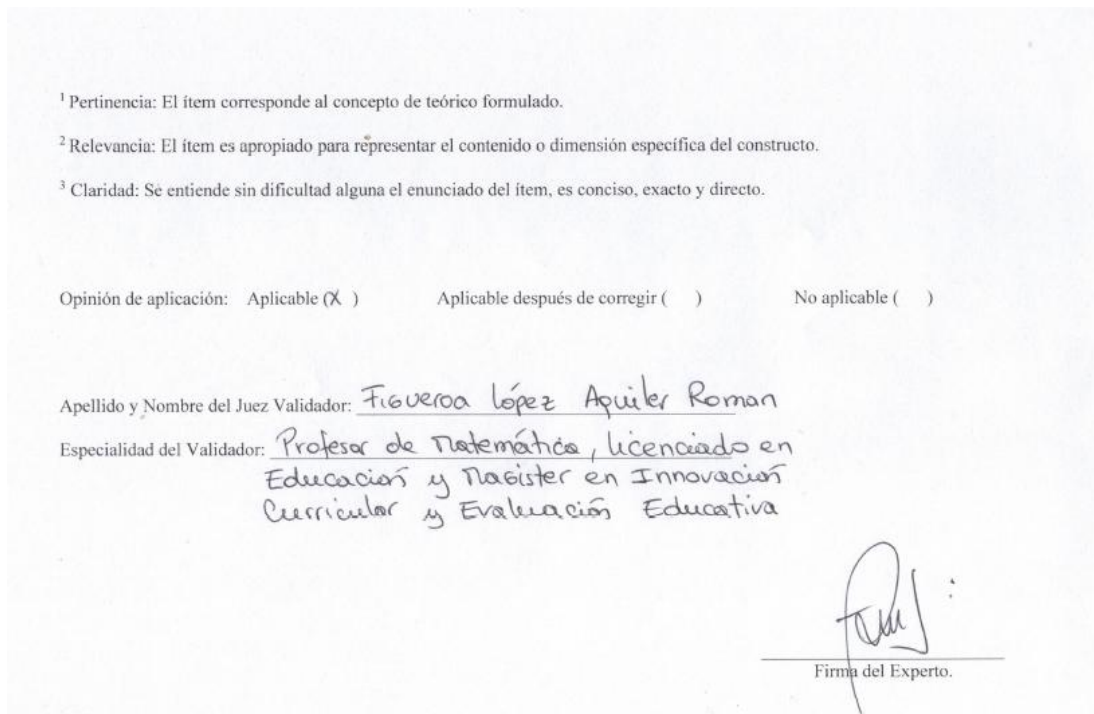 ¹ Pertinencia: El ítem corresponde al concepto de teórico formulado.
² Relevancia: El ítem es apropiado para representar el contenido o dimensión específica del constructo.
³ Claridad: Se entiende sin dificultad alguna el enunciado del ítem, es conciso, exacto y directo.
Opinión de aplicación: Aplicable (X ) Aplicable después de corregir ( ) No aplicable ( )
Apellido y Nombre del Juez Validador: Figueroa López Aquiler Roman
Especialidad del Validador: Profesor de Matemática, licenciado en
Educación y Magister en Innovación
Curricular y Evaluación Educativa
Firma del Experto.